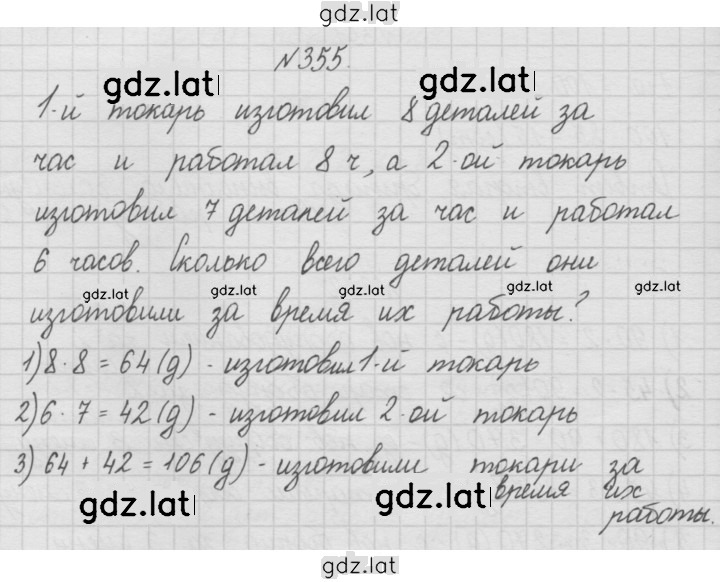 gdz.lat
№355.
gdz.lat gdz.lat
1-й токарь изготовил 8 деталей за
час и работал 8 ч, а 2-ой токарь
изготовил 7 деталей за час и работал
6 часов. Сколько всего деталей они
gdz.lat gdz.lat gdz.lat gdz.lat gdz.lat
изготовили за время их работы?
1) 8·8 = 64 (д) - изготовил 1-й токарь
2) 6·7 = 42 (д) - изготовил 2-ой токарь
3) 64 + 42 = 106 (д) - изготовили токари за
время их
работы.
gdz.lat gdz.lat
gdz.lat